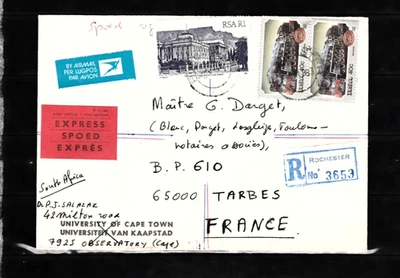 Spoed
BY AIRMAIL
PER LUGPOS
PAR AVION
RSA R1
40c
40c
EXPRESS
SPOED
EXPRÈS
Maître G. Darget,
(Blanc, Darget,
notaires associés),
B.P. 610
65000 TARBES
FRANCE.
R
ROCHESTER
No 3653
South Africa
Dr P.J. SALAZAR
42 Milton road
UNIVERSITY OF CAPE TOWN
UNIVERSITEIT VAN KAAPSTAD
7925 OBSERVATORY (Cape)